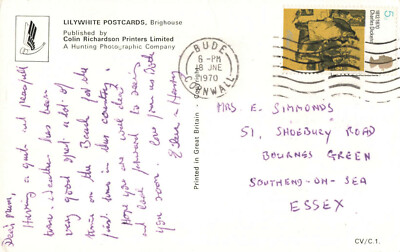 LILYWHITE POSTCARDS, Brighouse
Published by
Colin Richardson Printers Limited
A Hunting Photographic Company
BUDE
6-PM
8 JNE
1970
CORNWALL
5
Charles Dickens
Dear Mum,
Having a quiet and peaceful
time. Weather has been
very good spent a lot of
time on the Beach for the
first time in this country!
Hope you are well dear
and look forward to seeing
you soon. love from us both
& Henry
Printed in Great Britain
MRS E. SIMMONDS
51, SHOEBURY ROAD
BOURNES GREEN
SOUTHEND-ON-SEA
ESSEX
CV/C.1.